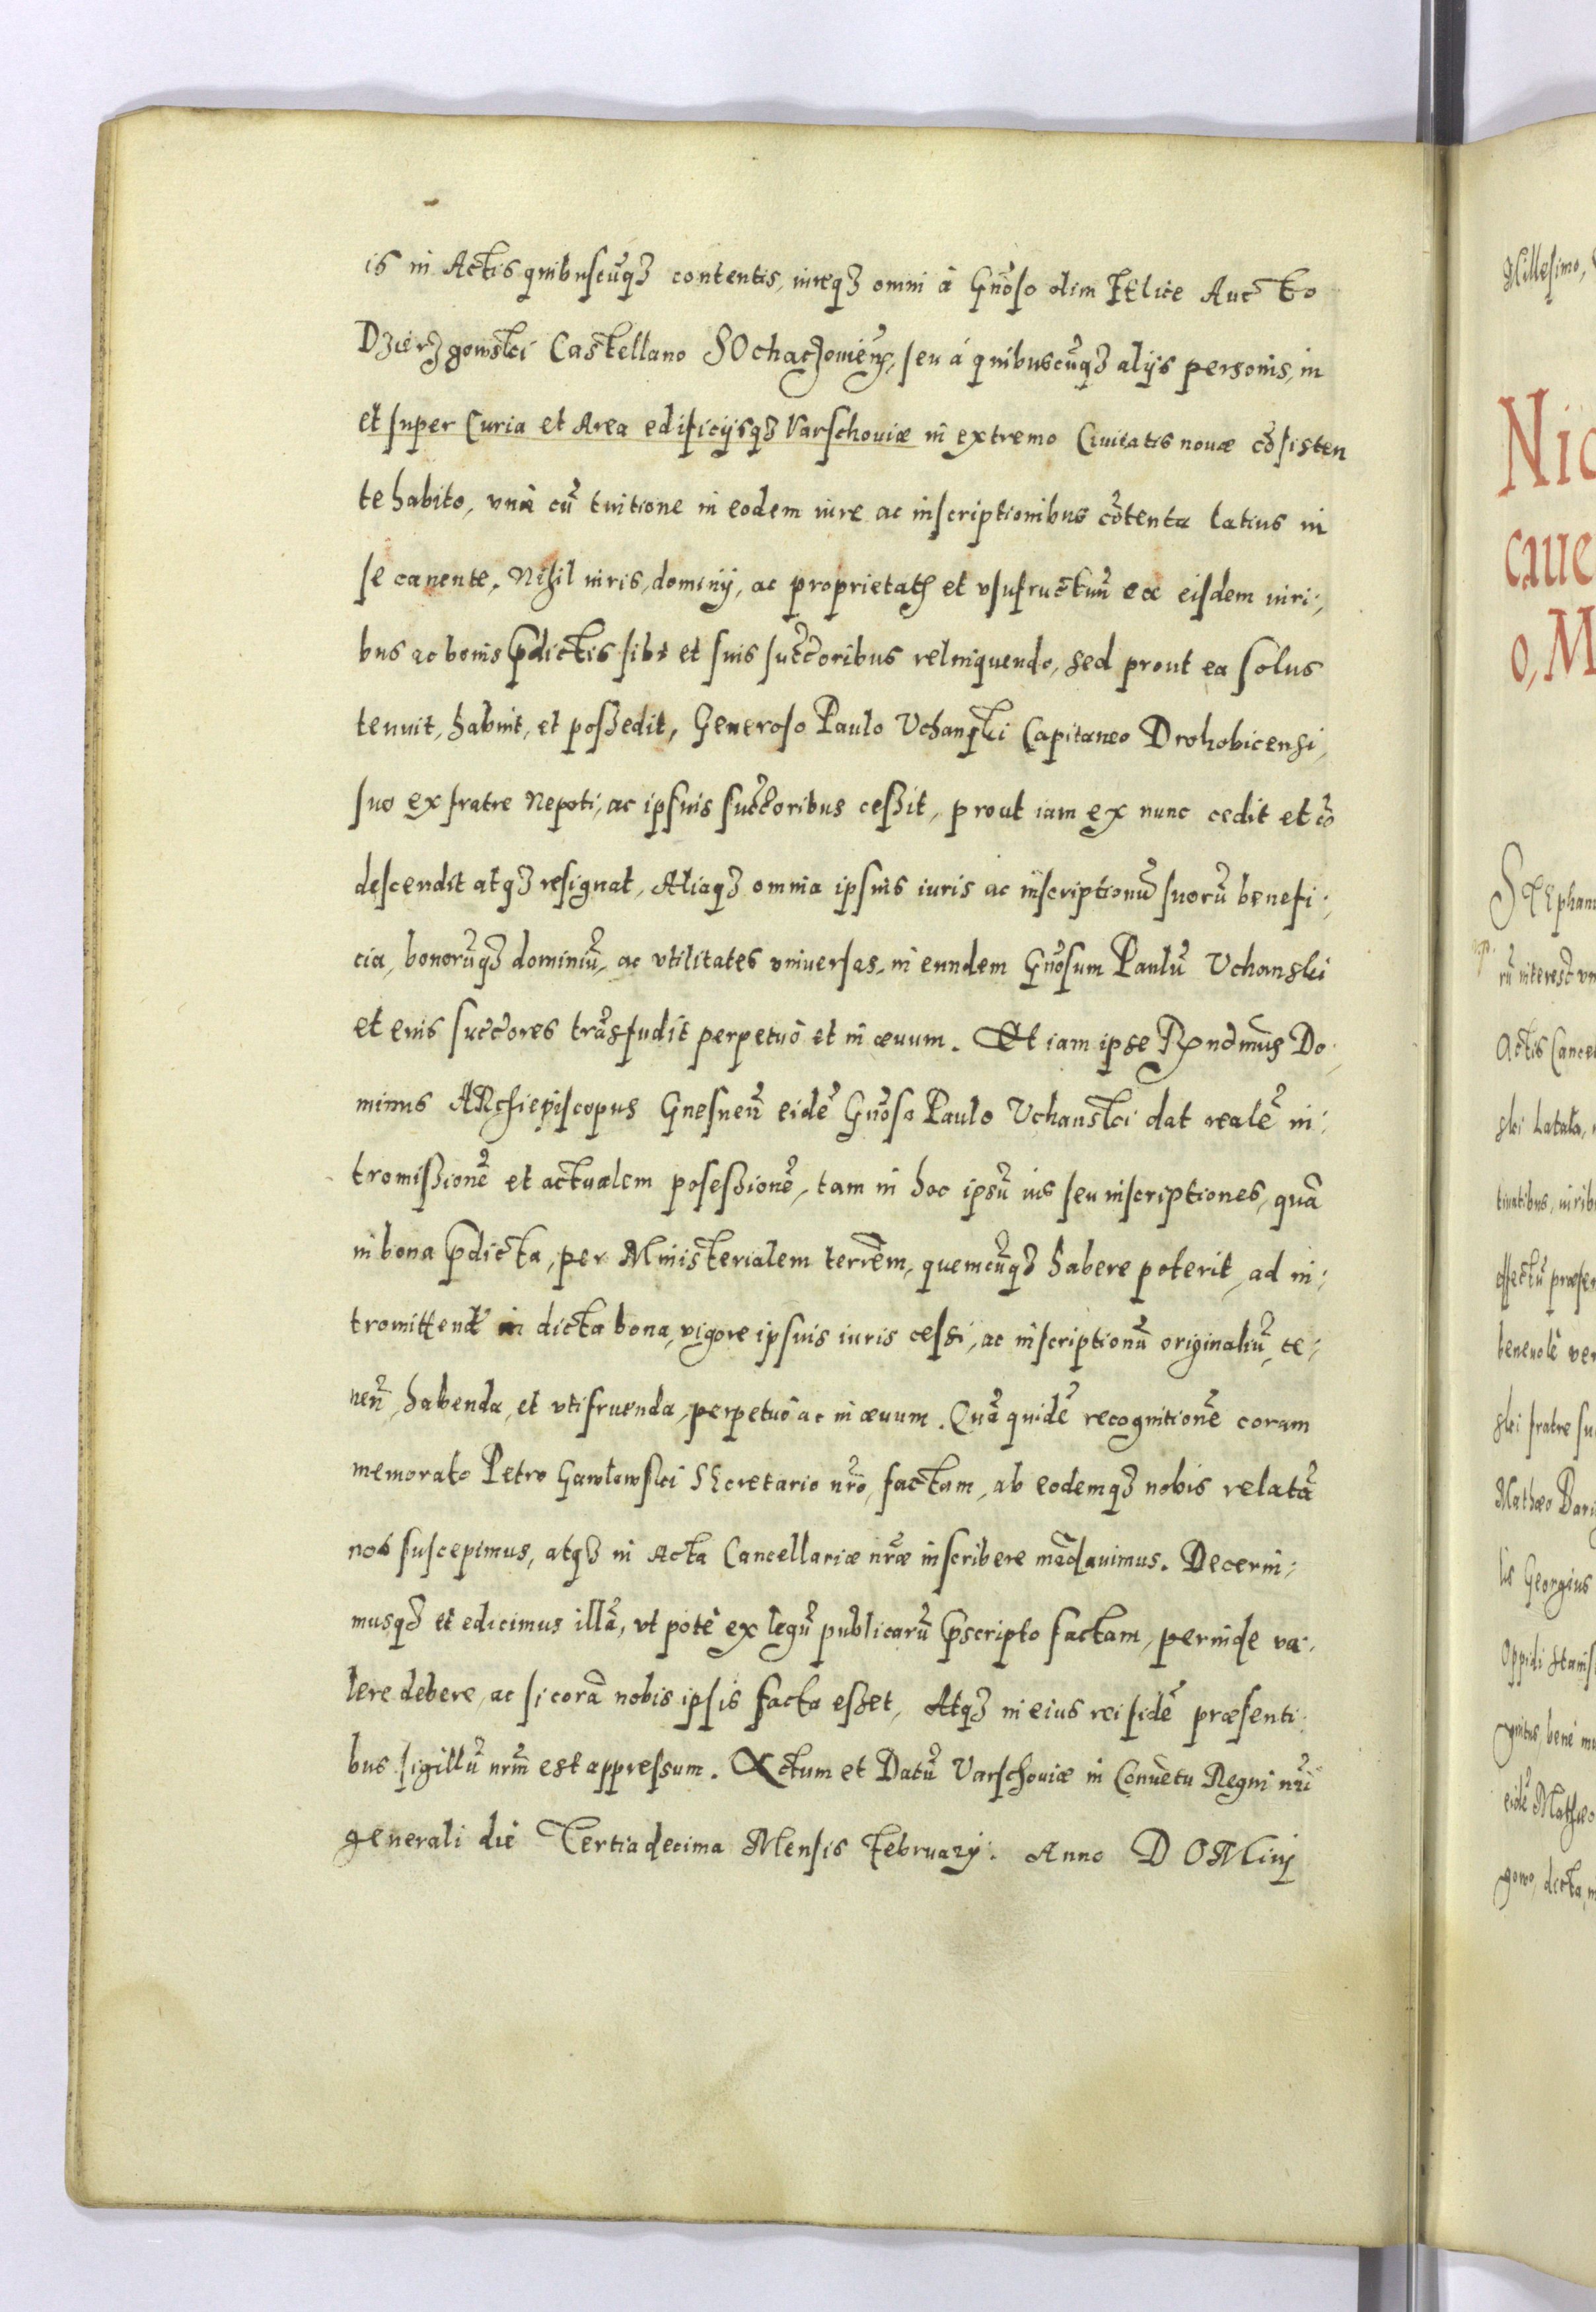 is in Actis quibuscũqȝ contentis, iureqȝ omni à Gnõso olim FElice Aucto
Dzierzgowski Castellano SOchaczouieñ, seu á quibuscũqȝ alijs personis, in
et super Curia et Area edificijsqȝ Varschouiæ in extremo Ciuitatis nouæ cõsisten
te habito, vnà cũ tuitione in eodem iure ac inscriptionibus cõtenta latius in
se canente. Nihil iuris, dominij, ac proprietatis et vsufructuũ ex eisdem iuri:,
bus ac bonis p̃dictis sibi et suis succ̃oribus relinquendo, sed prout ea solus
tenuit, habuit, et possedit, Generoso Paulo Vchanski Capitaneo Drohobicensi,
suo ex fratre Nepoti, ac ipsuis succ̃oribus cessit, prout iam ex nunc cedit et cõ
descendit atqȝ resignat, Aliaqȝ omnia ipsuis iuris ac inscriptionũ suorũ benefi:,
cia, bonorũqȝ dominiũ, ac vtilitates vniuersas, in eundem Gnõsum Paulũ Vchanski
et euis succ̃ores trãsfudit perpetuò et in æuum. Et iam ipse Rñdmus Do:,
minus ARchiepiscopus Gnesneñ eidẽ Gnõso Paulo Vchanski dat realẽ in:,
tromissionẽ et actualem posessionẽ, tam in hoc ipsũ ius seu inscriptiones, quã
in bona p̃dicta, per Ministerialem terrẽm, quemcũqȝ habere poterit, ad in:,
tromittend̃ in dicta bona, vigore ipsuis iuris cessi, ac inscriptionũ originaliũ, te:,
neñ, habenda, et vtifruenda, perpetuò ac in æuum. Quã quidẽ recognitionẽ coram
memorato Petro Gawłowski SEcretario nrõ, factam, ab eodemqȝ nobis relatã
nos suscepimus, atqȝ in Acta Cancellariæ nrǣ inscribere mãdauimus. Decerni:,
musqȝ et edicimus illã, vt potè ex legũ publicarũ p̃scripto factam, perinde va:,
lere debere, ac si corã nobis ipsis facta esset, Atqȝ in eius rei fidẽ præsenti:
bus sigillũ nrm̃ est appressum. Actum et Datũ Varschouiæ in Conuẽtu Regni nrĩ
generali die Tertiadecima Mensis Februarij. Anno DOMinj
Millesimo,
Nic
caue
o, M
STEphan
rũ interest vn
Actis Cancel
ski Latala,
tinatibus, iurib
effectũ præsen
beneuolẽ ver
ski fratre su
Mathæo Bari
lis Georgius
Oppidi Stanis
gnitus, bene
eidẽ Mathæo
gowo, dicta,